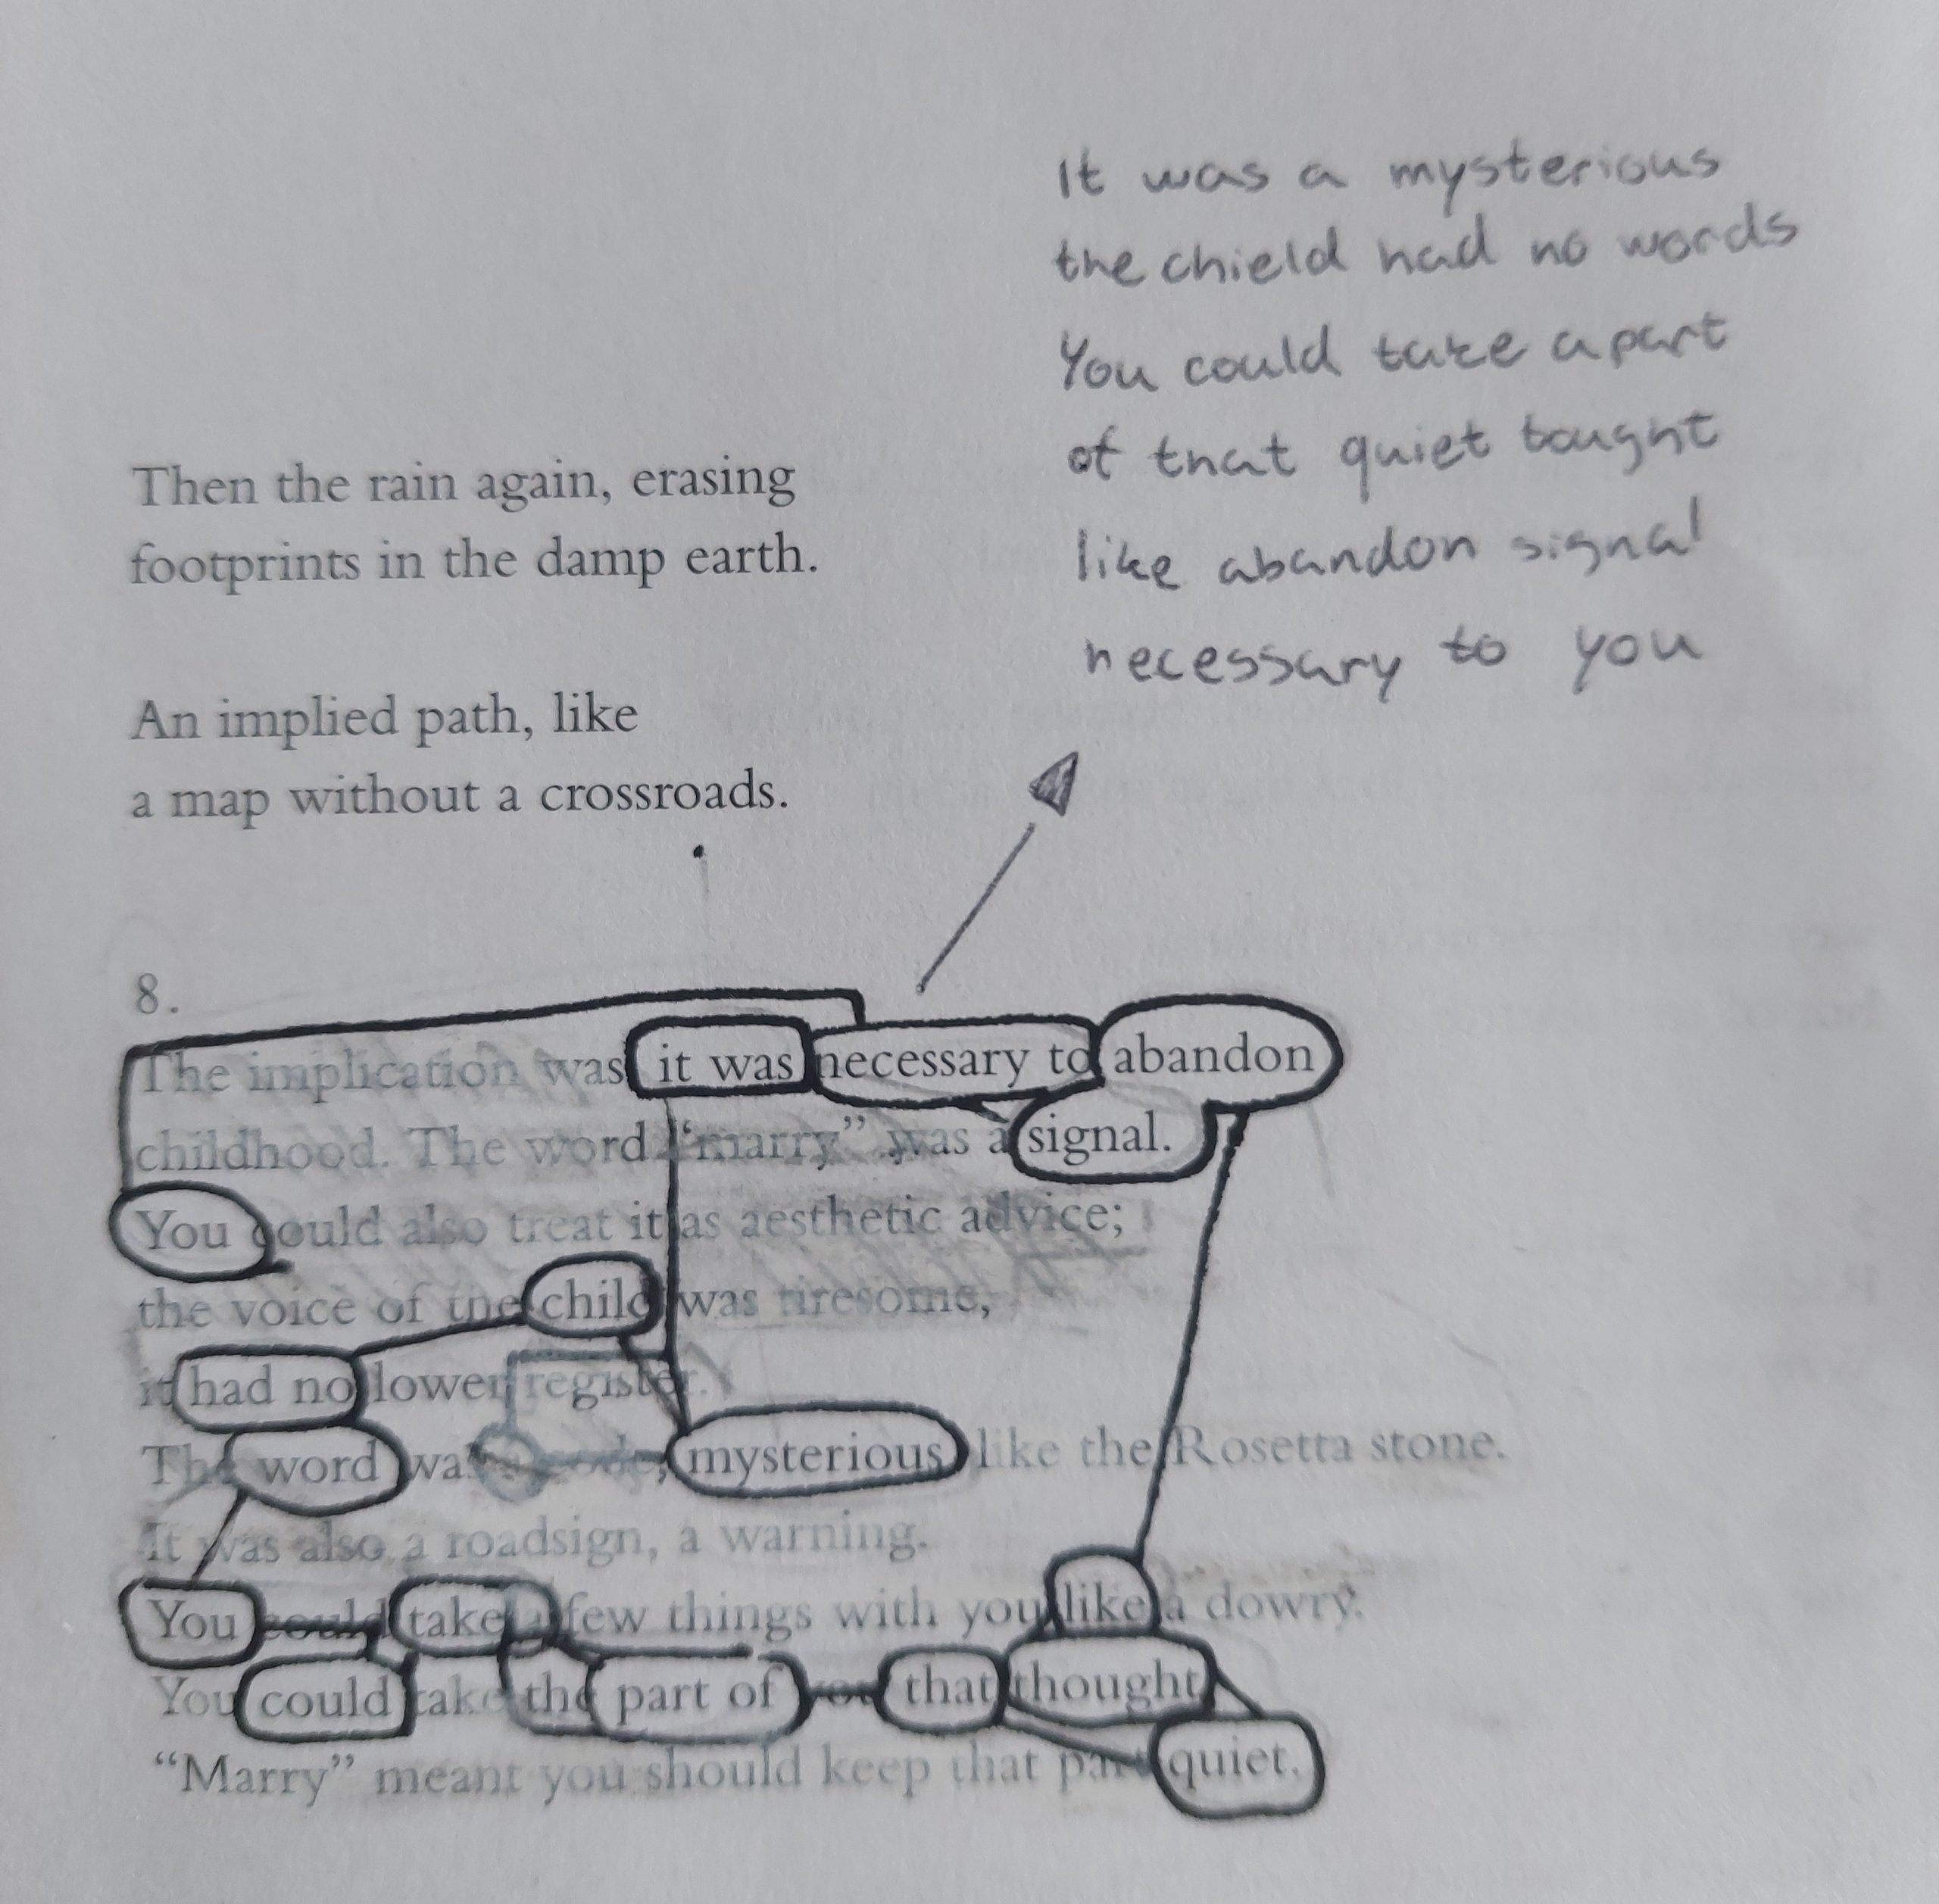 It was a mysterious
the chield had no words
You could take apart
of that quiet tought
like abandon signal
necessary to you
Then the rain again, erasing
footprints in the damp earth.
An implied path, like
a map without a crossroads.
8.
The implication was it was necessary to abandon
childhood. The word “marry” was a signal.
You could also treat it as aesthetic advice;
the voice of the child was tiresome,
it had no lower register.
The word was a code, mysterious like the Rosetta stone.
It was also a roadsign, a warning.
You could take a few things with you like a dowry.
You could take the part of you that thought
“Marry” meant you should keep that part quiet.